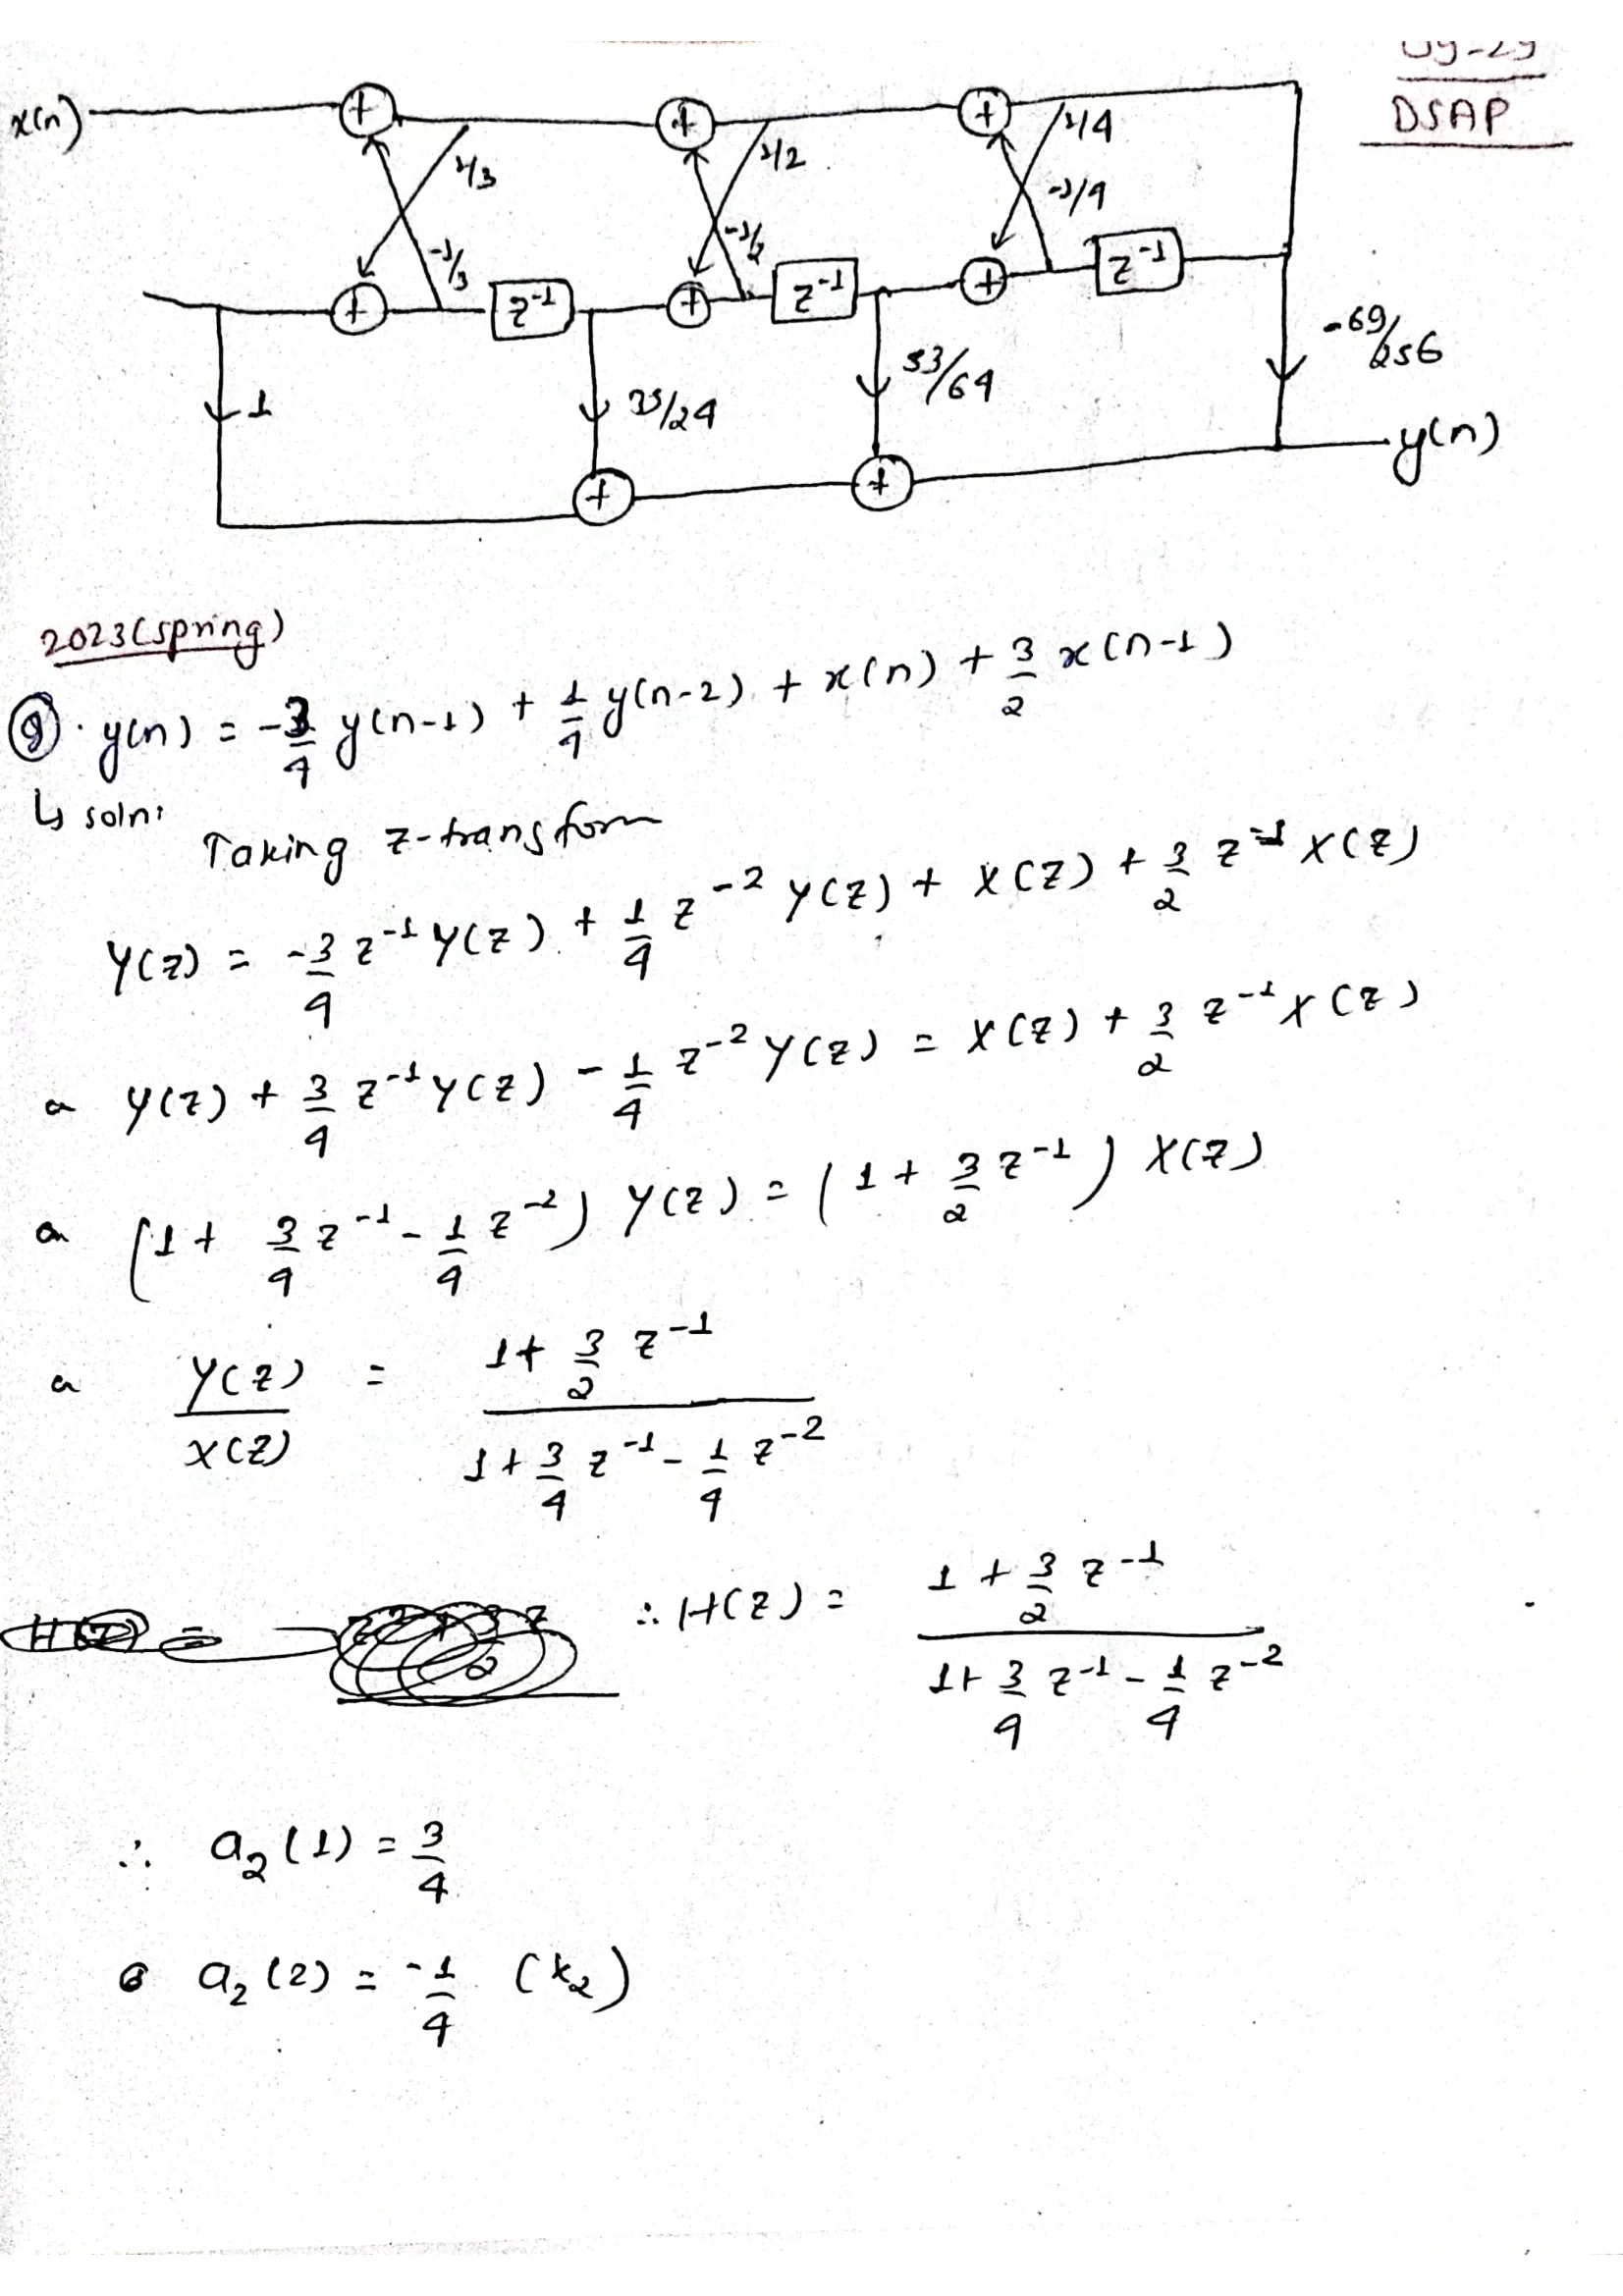 DSAP
x(n) + + + 1/4
1/3 1/2
-1/4
-1/3
+ z⁻¹ + z⁻¹ + z⁻¹
-69/256
53/64
1 35/24
y(n)
+ +
2023(spring)
Q. y(n) = -3/4 y(n-1) + 1/4 y(n-2) + x(n) + 3/2 x(n-1)
↳ soln:
Taking z-transform
Y(z) = -3/4 z⁻¹ Y(z) + 1/4 z⁻² Y(z) + X(z) + 3/2 z⁻¹ X(z)
or Y(z) + 3/4 z⁻¹ Y(z) - 1/4 z⁻² Y(z) = X(z) + 3/2 z⁻¹ X(z)
or (1 + 3/4 z⁻¹ - 1/4 z⁻²) Y(z) = (1 + 3/2 z⁻¹) X(z)
or Y(z)/X(z) = (1 + 3/2 z⁻¹)/(1 + 3/4 z⁻¹ - 1/4 z⁻²)
∴ H(z) = (1 + 3/2 z⁻¹)/(1 + 3/4 z⁻¹ - 1/4 z⁻²)
∴ a₂(1) = 3/4
a₂(2) = -1/4 (k₂)